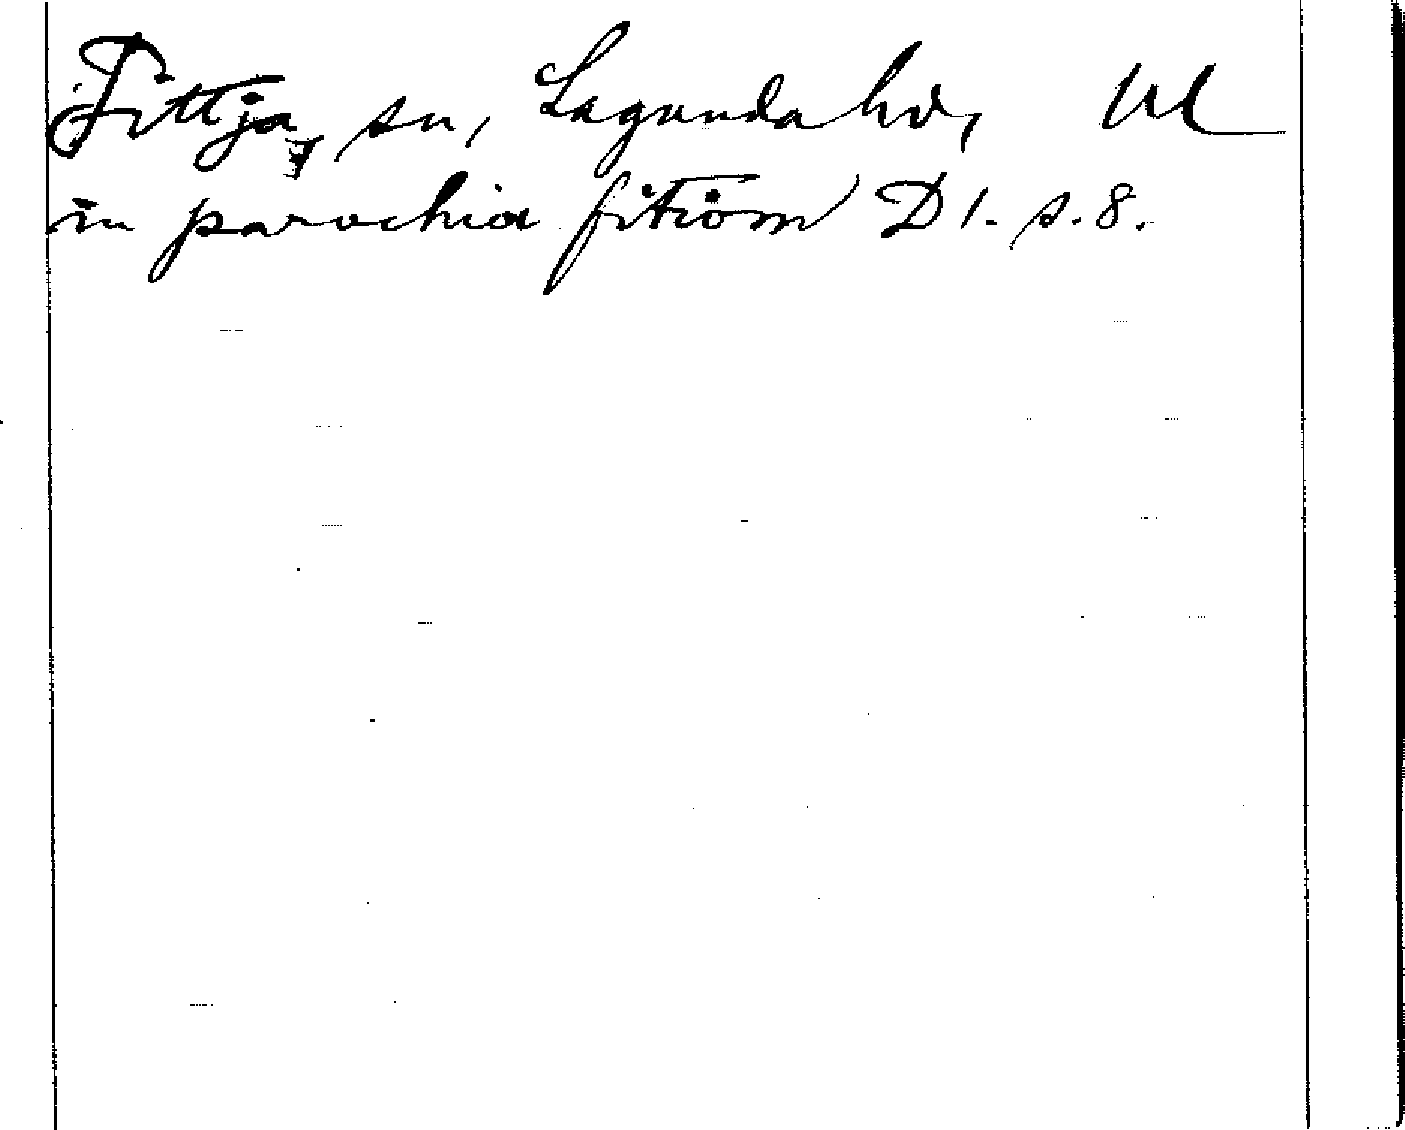 Fittja, sn, Lagunda hd, Upl
in parochia fitiom D 1. s. 8.